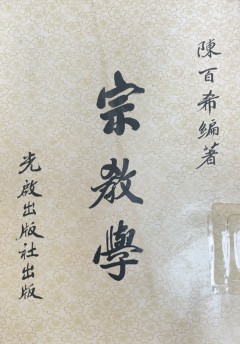 陳百希編著
宗教學
光啟出版社出版